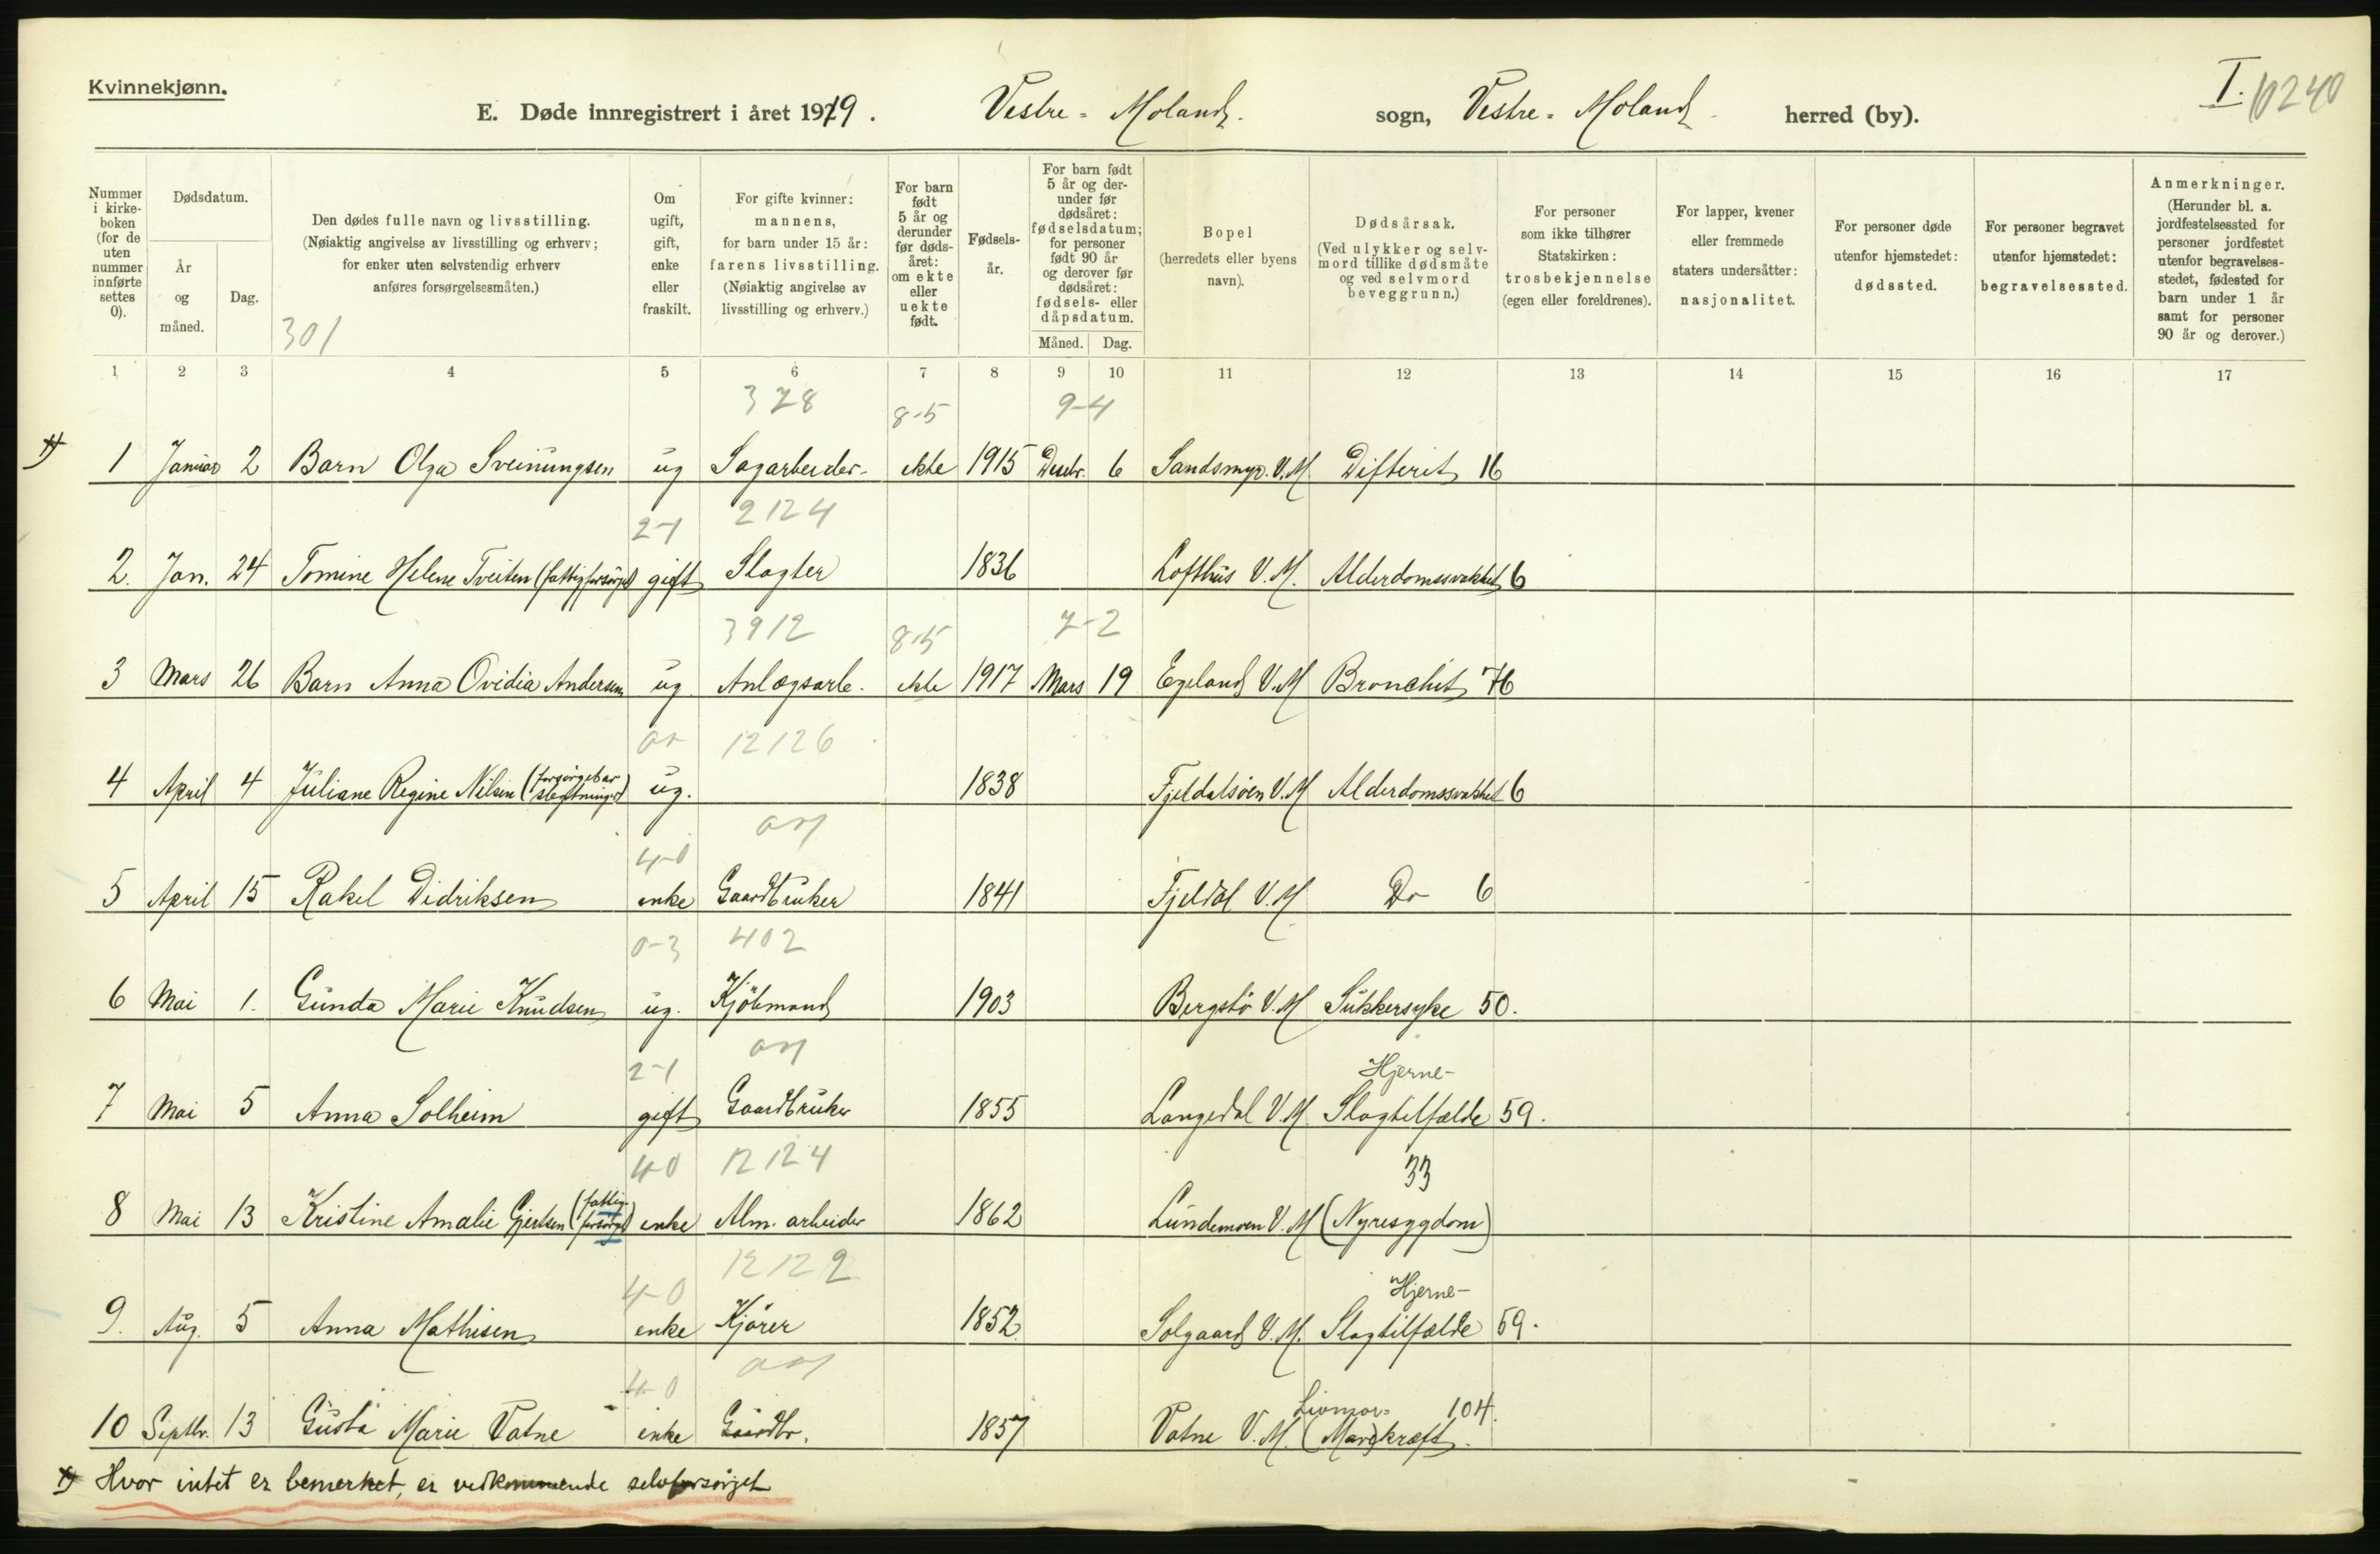 Kvinnekjønn.
E. Døde innregistrert i året 1919. Vestre-Moland sogn, Vestre-Moland herred (by).
I. 10240
Nummer i kirkeboken (for de uten nummer innførte settes 0).
Dødsdatum.
År og måned.
Dag.
Den dødes fulle navn og livsstilling.
(Nøiaktig angivelse av livsstilling og erhverv;
for enker uten selvstendig erhverv
anføres forsørgelsesmåten.)
301
Om ugift, gift, enke eller fraskilt.
For gifte kvinner: mannens, for barn under 15 år: farens livsstilling. (Nøiaktig angivelse av livsstilling og erhverv.)
For barn født 5 år og derunder før dødsåret: om ekte eller uekte født.
Fødselsår.
For barn født 5 år og derunder før dødsåret: fødselsdatum; for personer født 90 år og derover før dødsåret: fødsels- eller dåpsdatum.
Måned. Dag.
Bopel (herredets eller byens navn).
Dødsårsak. (Ved ulykker og selvmord tillike dødsmåte og ved selvmord beveggrunn.)
For personer som ikke tilhører Statskirken: trosbekjennelse (egen eller foreldrenes).
For lapper, kvener eller fremmede staters undersåtter: nasjonalitet.
For personer døde utenfor hjemstedet: dødssted.
For personer begravet utenfor hjemstedet: begravelsessted.
Anmerkninger. (Herunder bl. a. jordfestelsessted for personer jordfestet utenfor begravelsesstedet, fødested for barn under 1 år samt for personer 90 år og derover.)
1 2 3 4 5 6 7 8 9 10 11 12 13 14 15 16 17
378 8-5 9-4
1) 1 Januar 2 Barn Olga Sveinungsen ug Sagarbeider- ekte 1915 Desbr. 6 Sandsmyr. V.M. Difterit 16
2-1 2124
2. Jan. 24 Tomine Helene Tveiten (fattigforsørget) gift Slagter 1836 Lofthus V.M. Alderdomssvakhet 6
3912 8-5 7-2
3 Mars 26 Barn Anna Ovidia Andersen ug Anlægsarb. ekte 1917 Mars 19 Egeland V.M Bronchit 76
12126
4 April 4 Juliane Regine Nilsen (forsørget av slegtninger) ug. 1838 Fjeldalsøen V.M Alderdomssvakhet 6
4-0
5 April 15 Rakel Didriksen enke Gaardbruker 1841 Fjeldal V.M Do 6
0-3 402
6 Mai 1. Gunda Marie Knudsen ug. Kjøbmand 1903 Bergstø V.M Sukkersyke 50.
2-1 Hjerne-
7 Mai 5 Anna Solheim gift Gaardbruker 1855 Langedal V.M. Slagtilfælde 59.
4-0 12124 33
8 Mai 13 Kristine Amalie Gjertsen (fattigforsørget) enke Alm. arbeider 1862 Lundemoen V.M (Nyresygdom)
4-0 12122 Hjerne-
9. Aug. 5 Anna Mathisen enke Kjører 1852 Solgaard V.M. Slagtilfælde 59.
4-0 104.
10 Septbr. 13 Gusta Marie Vatne enke Gaardbr. 1857 Vatne V.M. kræft.
1) Hvor intet er bemerket, er vedkommende selvforsørget